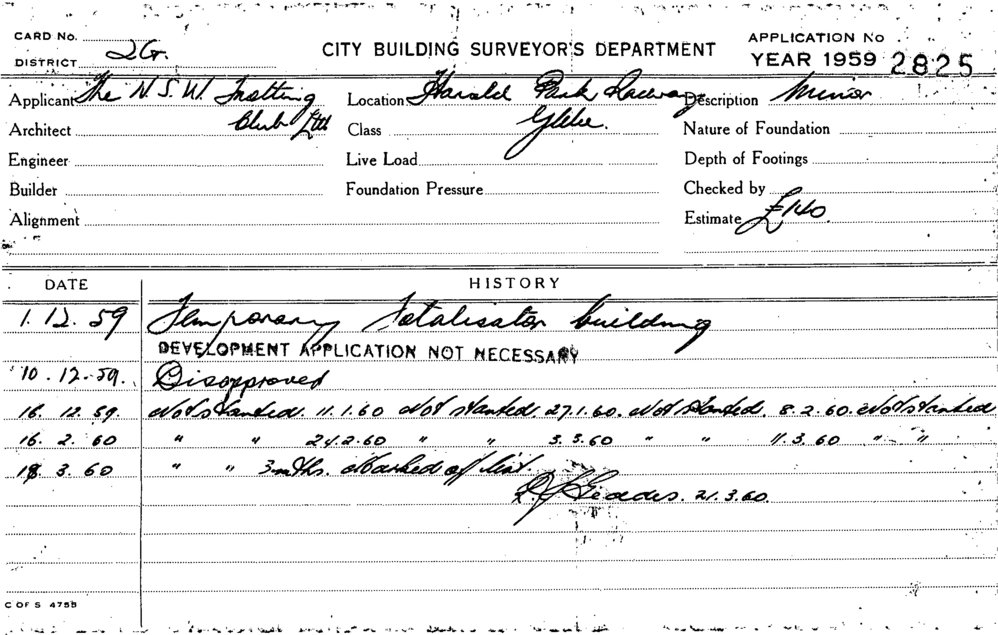 CARD No.
DISTRICT 2G.
CITY BUILDING SURVEYOR'S DEPARTMENT
APPLICATION No
YEAR 1959 2825
Applicant The N.S.W. Trotting Location Harold Park Raceway Description Minor
Architect Club Ltd Class Glebe. Nature of Foundation
Engineer Live Load Depth of Footings
Builder Foundation Pressure Checked by
Alignment Estimate £140.
DATE HISTORY
1.12.59 Temporary Totalisator building
DEVELOPMENT APPLICATION NOT NECESSARY
10.12.59. Disapproved
16.12.59. Not started. 11.1.60 Not started. 27.1.60. Not started. 8.2.60. Not started
16.2.60 " " 24.2.60 " " 3.3.60 " " 11.3.60 " "
18.3.60 " " 3 mths. Marked off list.
Geddes. 21.3.60.
C OF S 475B